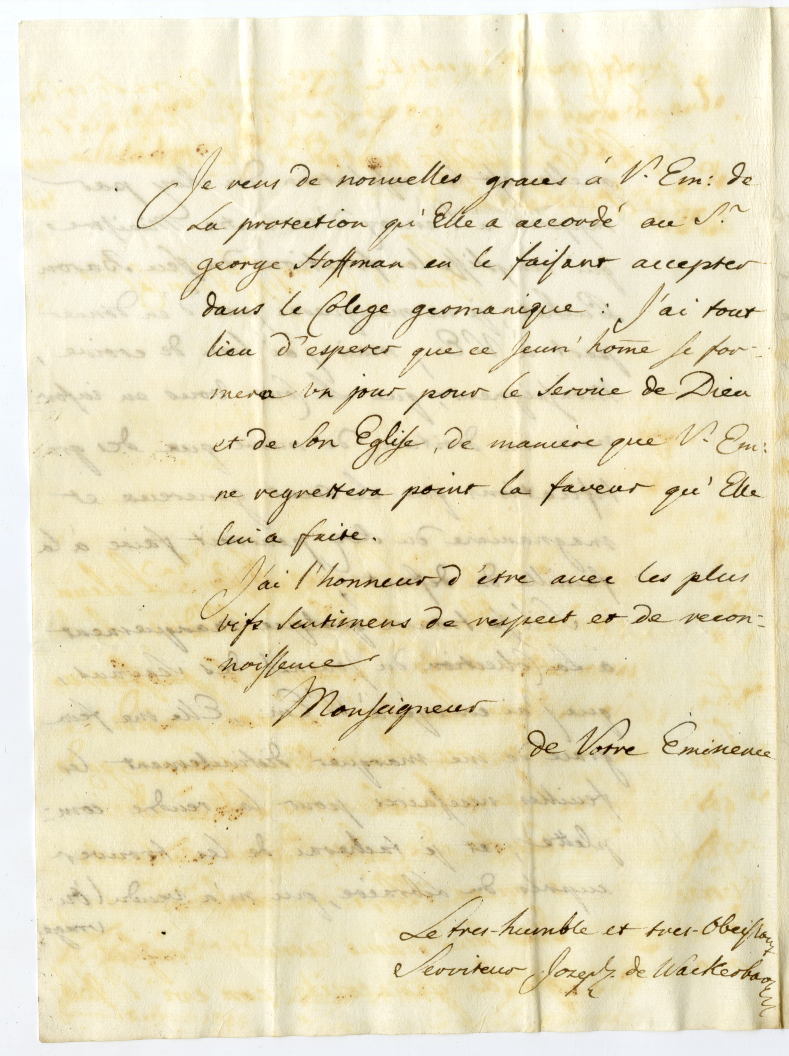 Je rens de nouvelles graces á V.r Em: de
La protection qu'Elle a accordé au S.r
george Hoffman en le faisant accepter
dans le Colege germanique : J'ai tout
lieu d'esperer que ce Jeun' home se for-
mera un jour pour le Service de Dieu
et de Son Eglise, de maniere que V.r Em:
ne regrettera point la faveur qu'Elle
lui a faite.
J'ai l'honneur d'étre avec les plus
vifs Sentimens de respect et de recon-
noissence
Monseigneur
de Votre Eminence
Le tres-humble et tres-Obeissant
Serviteur Joseph de Wackerbarth